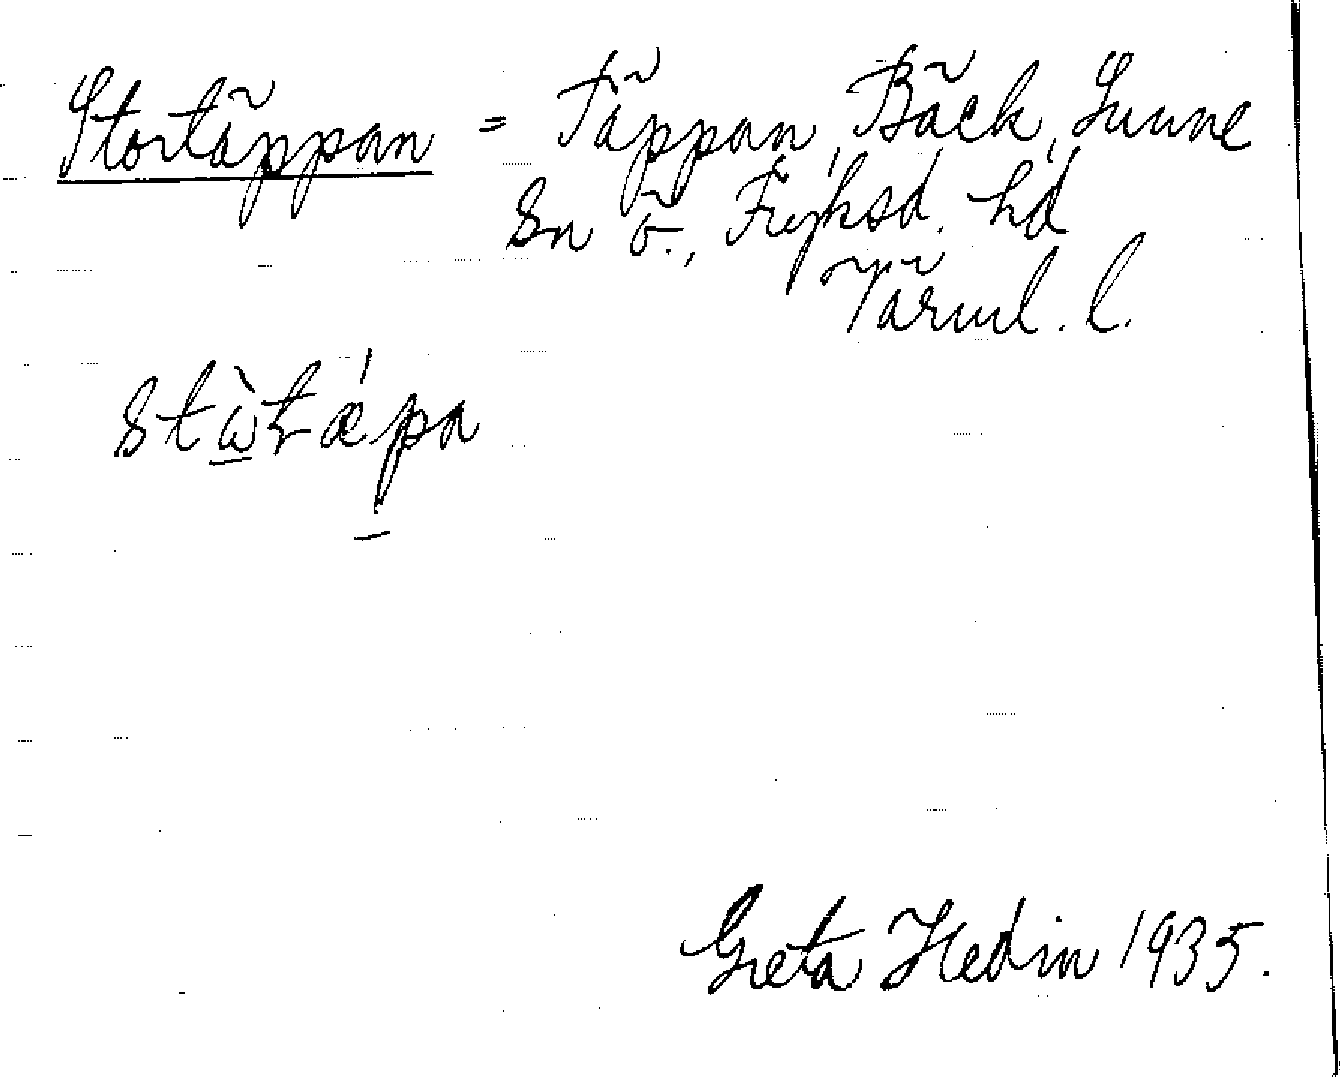 Stortäppan = Täppan, Bäck, Sunne
Sn ö., Fryksd. hd
Värml. l.
stὼtæ´pa
Greta Hedin 1935.